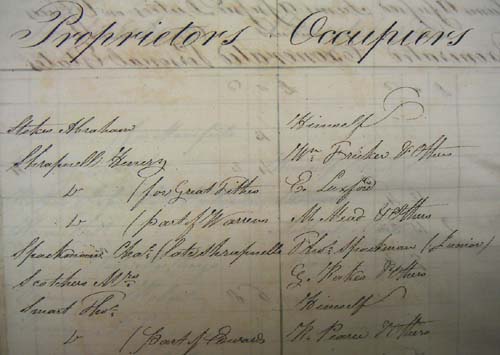 Proprietors Occupiers
Stokes Abraham Himself
Shrapnell Henry Wm Fricker & Others
" (for Great Tithes E. Luxford
" (part of Warrens M. Mead & Others
Spackman Chas. (late Shrapnells Thos. Spackman (Junior)
Scotchers Mrs G. Parkes & Others
Smart Thos. Himself
" (part of Edwards W. Pearce & Others